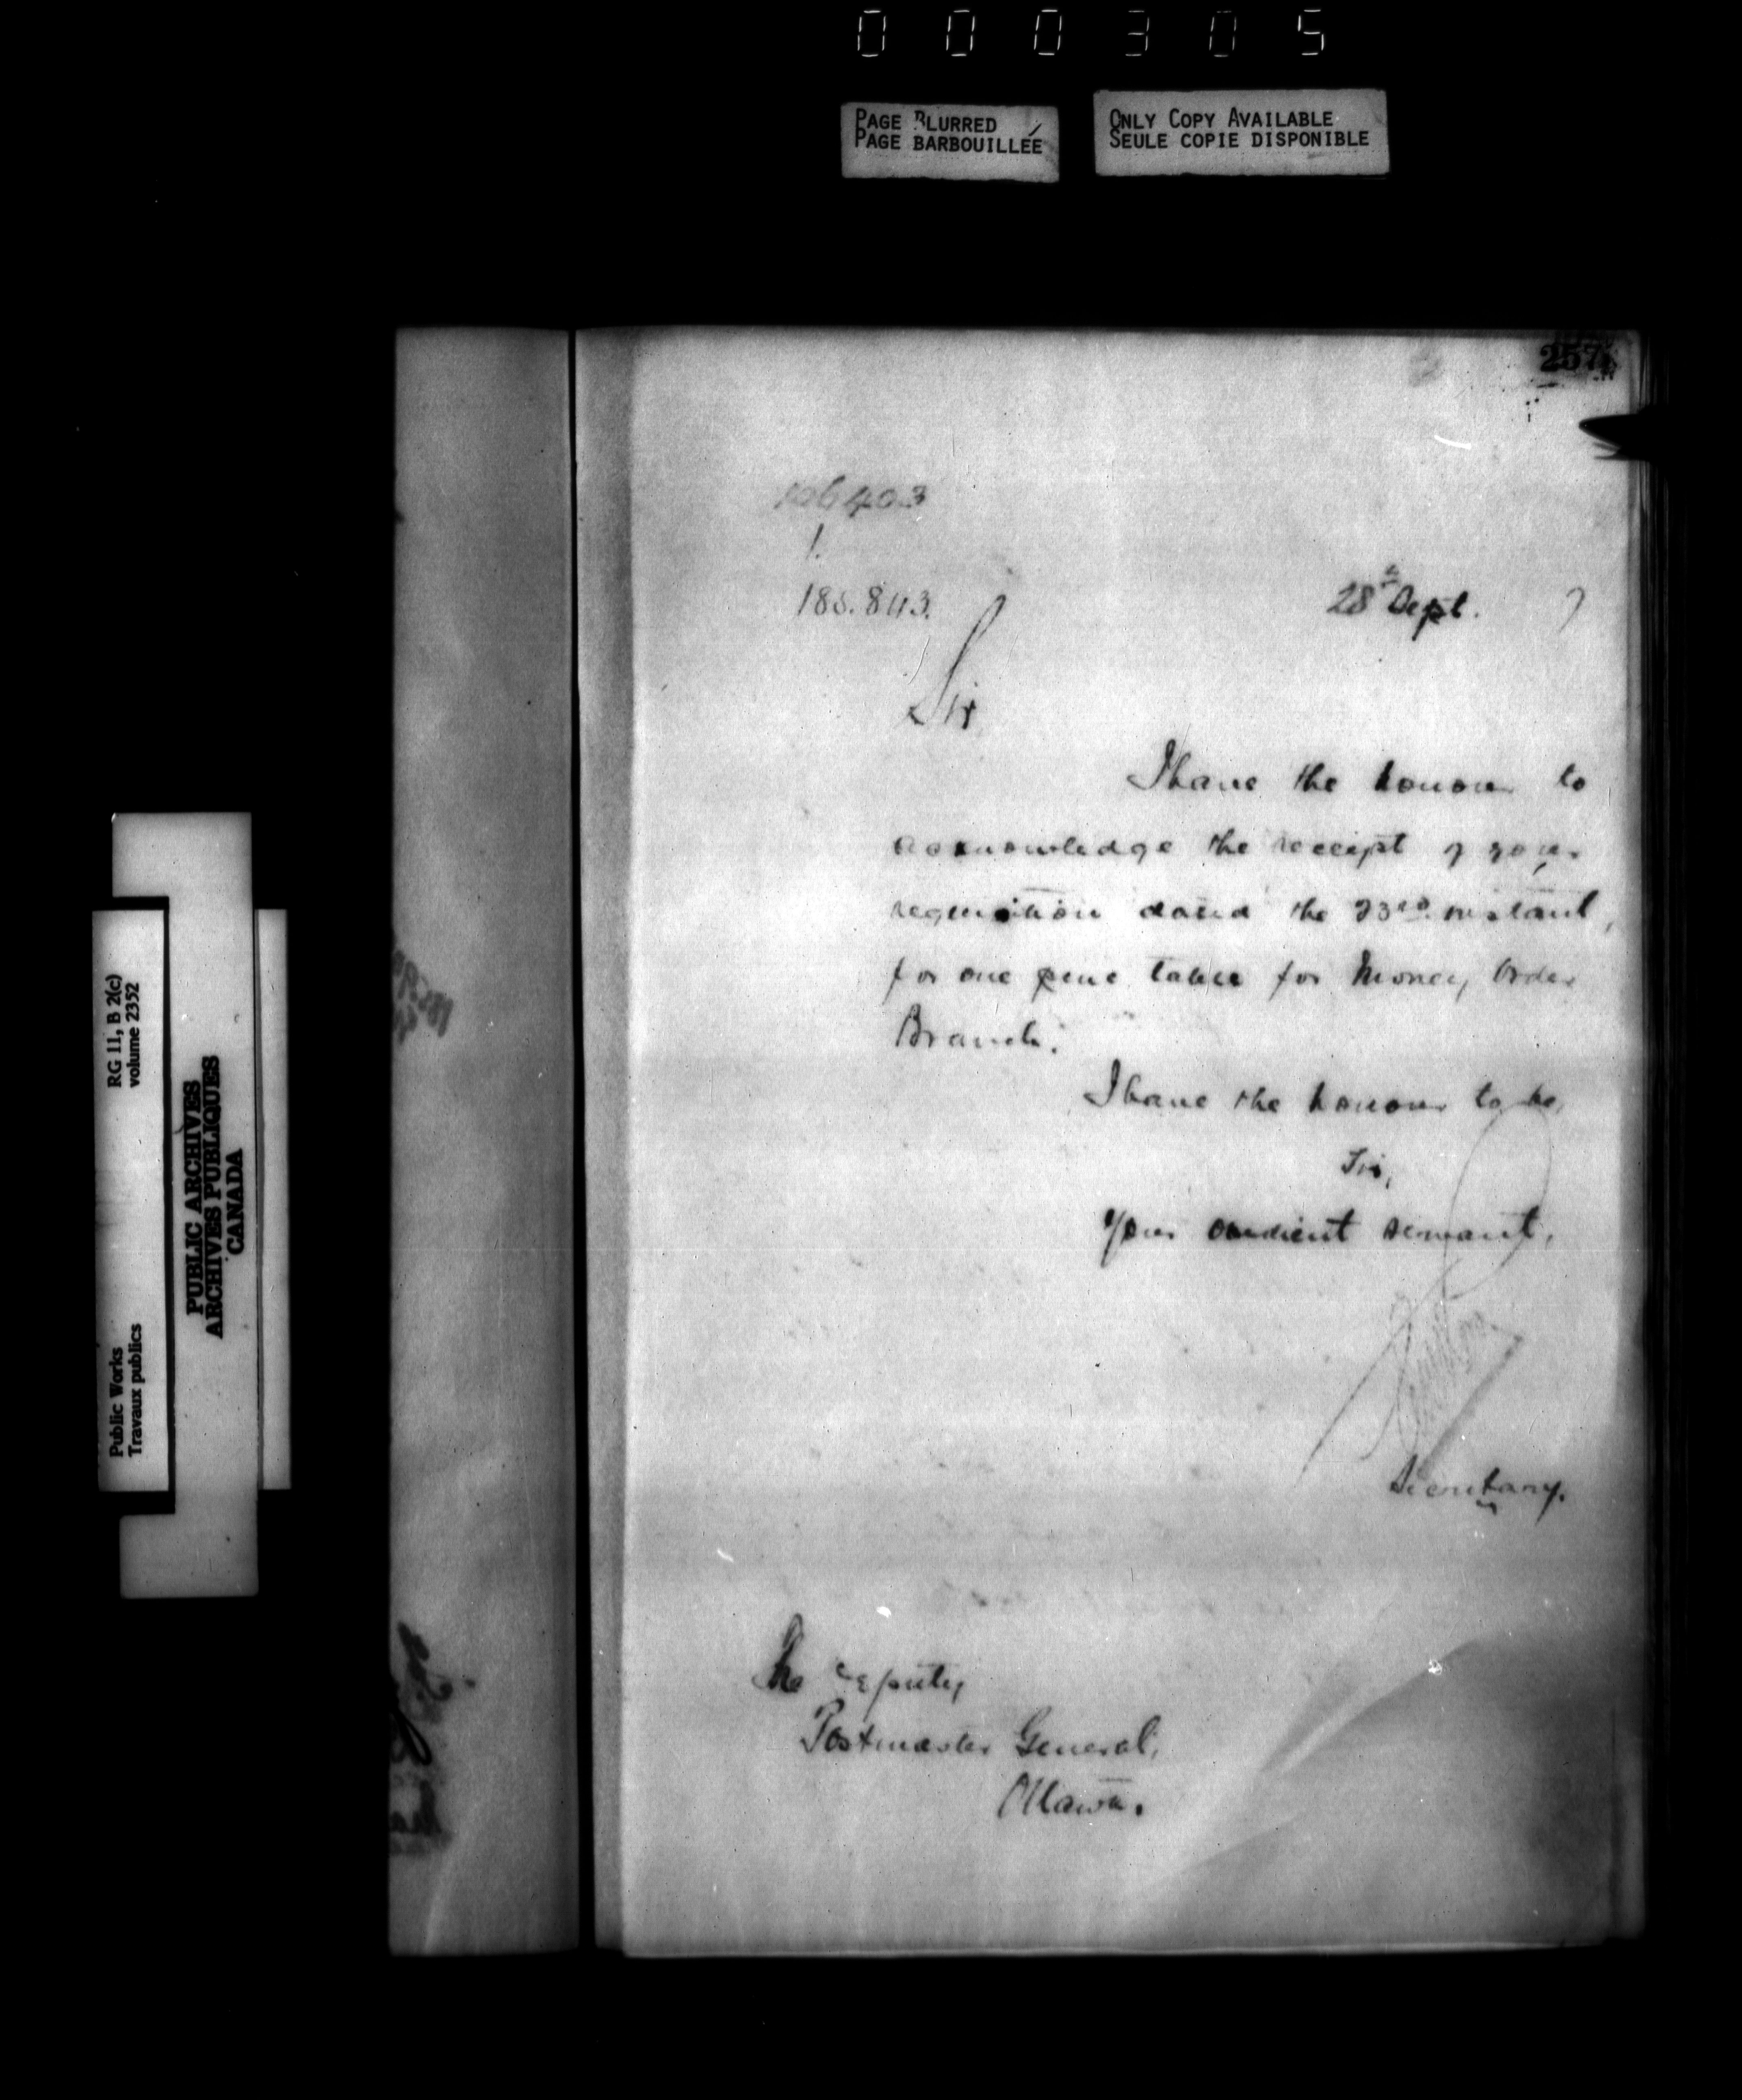 000305
PAGE BLURRED
PAGE BARBOUILLÉE
ONLY COPY AVAILABLE
SEULE COPIE DISPONIBLE
257
106403
1.
185.843.
28th Sept. 7
Sir
I have the honour to
acknowledge the receipt of your
requisition dated the 23rd instant,
for one pine table for Money Order
Branch.
I have the honour to be,
Sir,
Your obedient servant,
Secretary.
The Deputy
Postmaster General,
Ottawa.
RG 11, B 2(c)
volume 2352
Public Works
Travaux publics
PUBLIC ARCHIVES
ARCHIVES PUBLIQUES
CANADA